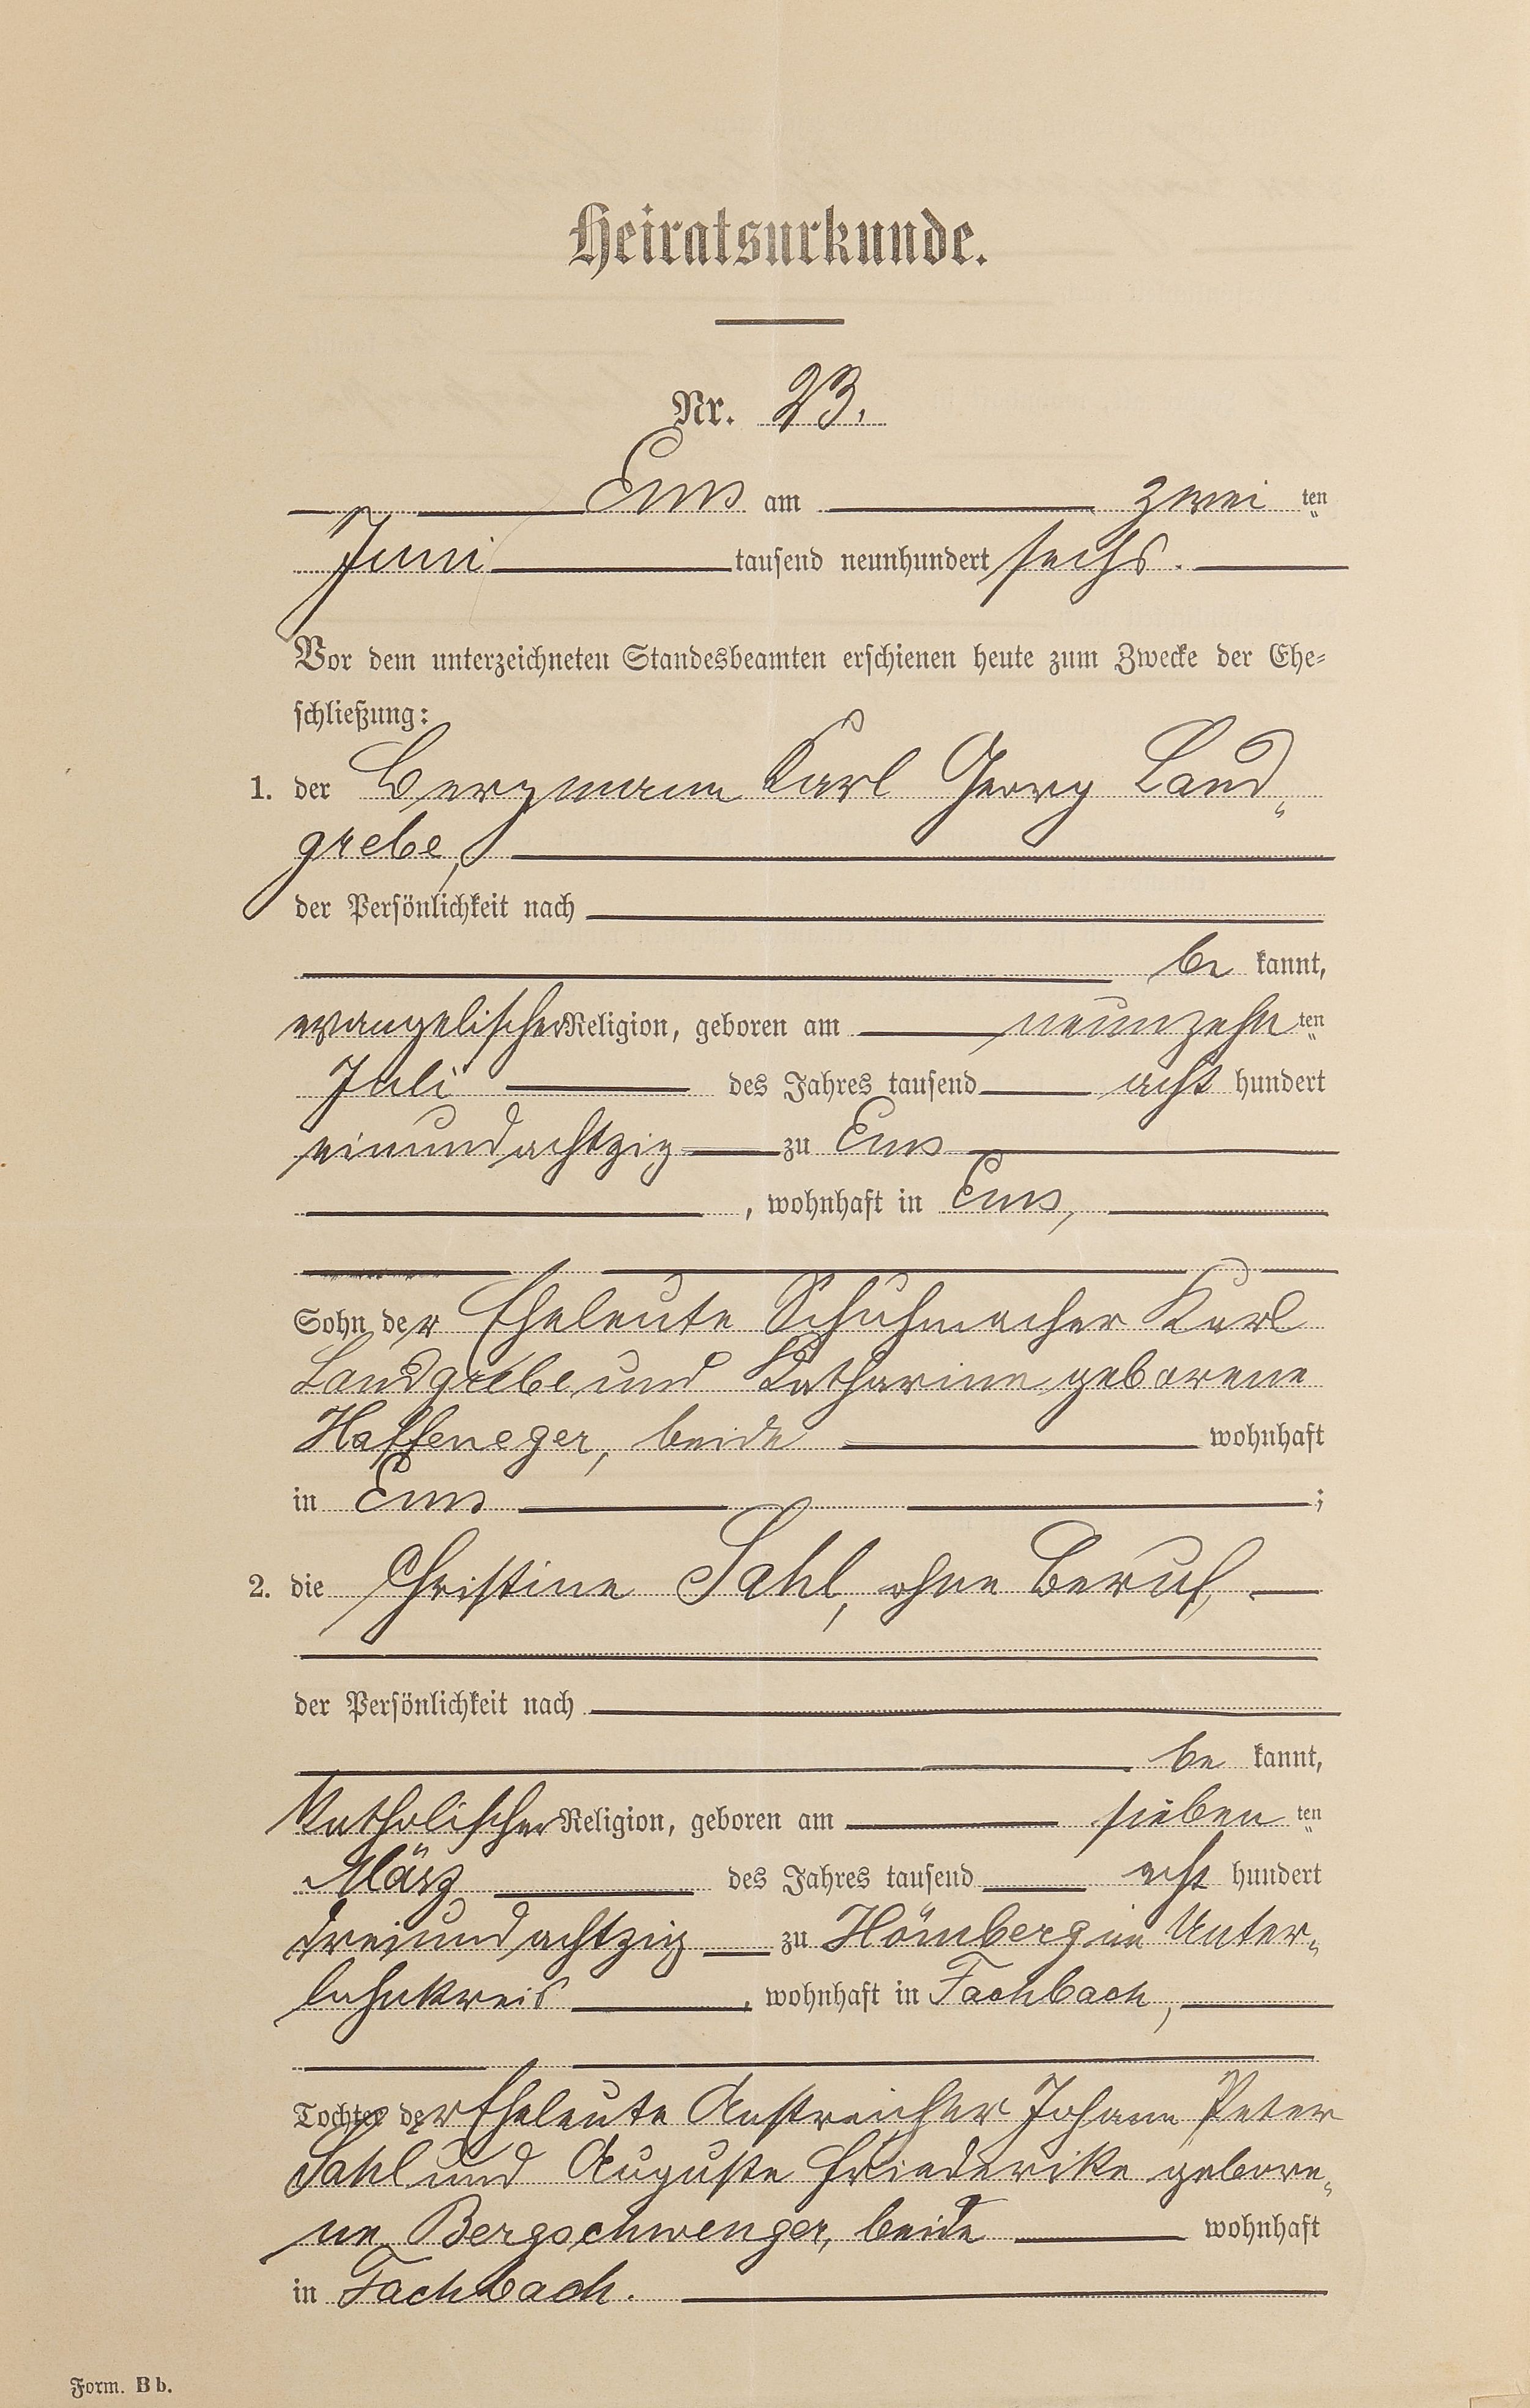 Heiratsurkunde.
Nr. 23.
Ems am zwei ten
Juni tausend neunhundert sechs.
Vor dem unterzeichneten Standesbeamten erschienen heute zum Zwecke der Ehe-
schließung:
1. der Bergmann Karl Georg Land-
grebe,
der Persönlichkeit nach
be kannt,
evangelischer Religion, geboren am neunzehn ten
Juli des Jahres tausend acht hundert
einundachtzig zu Ems
, wohnhaft in Ems,
Sohn der Eheleute Schuhmacher Karl
Landgrebe und Katharine geborene
Haffeneger, beide wohnhaft
in Ems ;
2. die Christine Sahl, ohne Beruf,
der Persönlichkeit nach
be kannt,
katholischer Religion, geboren am sieben ten
März des Jahres tausend acht hundert
dreiundachtzig zu Hömberg im Unter-
lahnkreis , wohnhaft in Fachbach,
Tochter der Eheleute Anstreicher Johann Peter
Sahl und Auguste Friederike gebore-
ne Bergschwenger, beide wohnhaft
in Fachbach.
Form. B b.